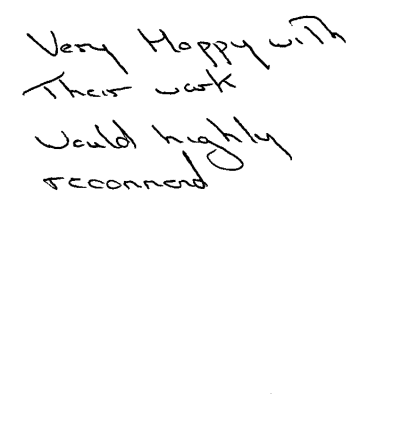 Very Happy with
Their work
Would highly
recommend